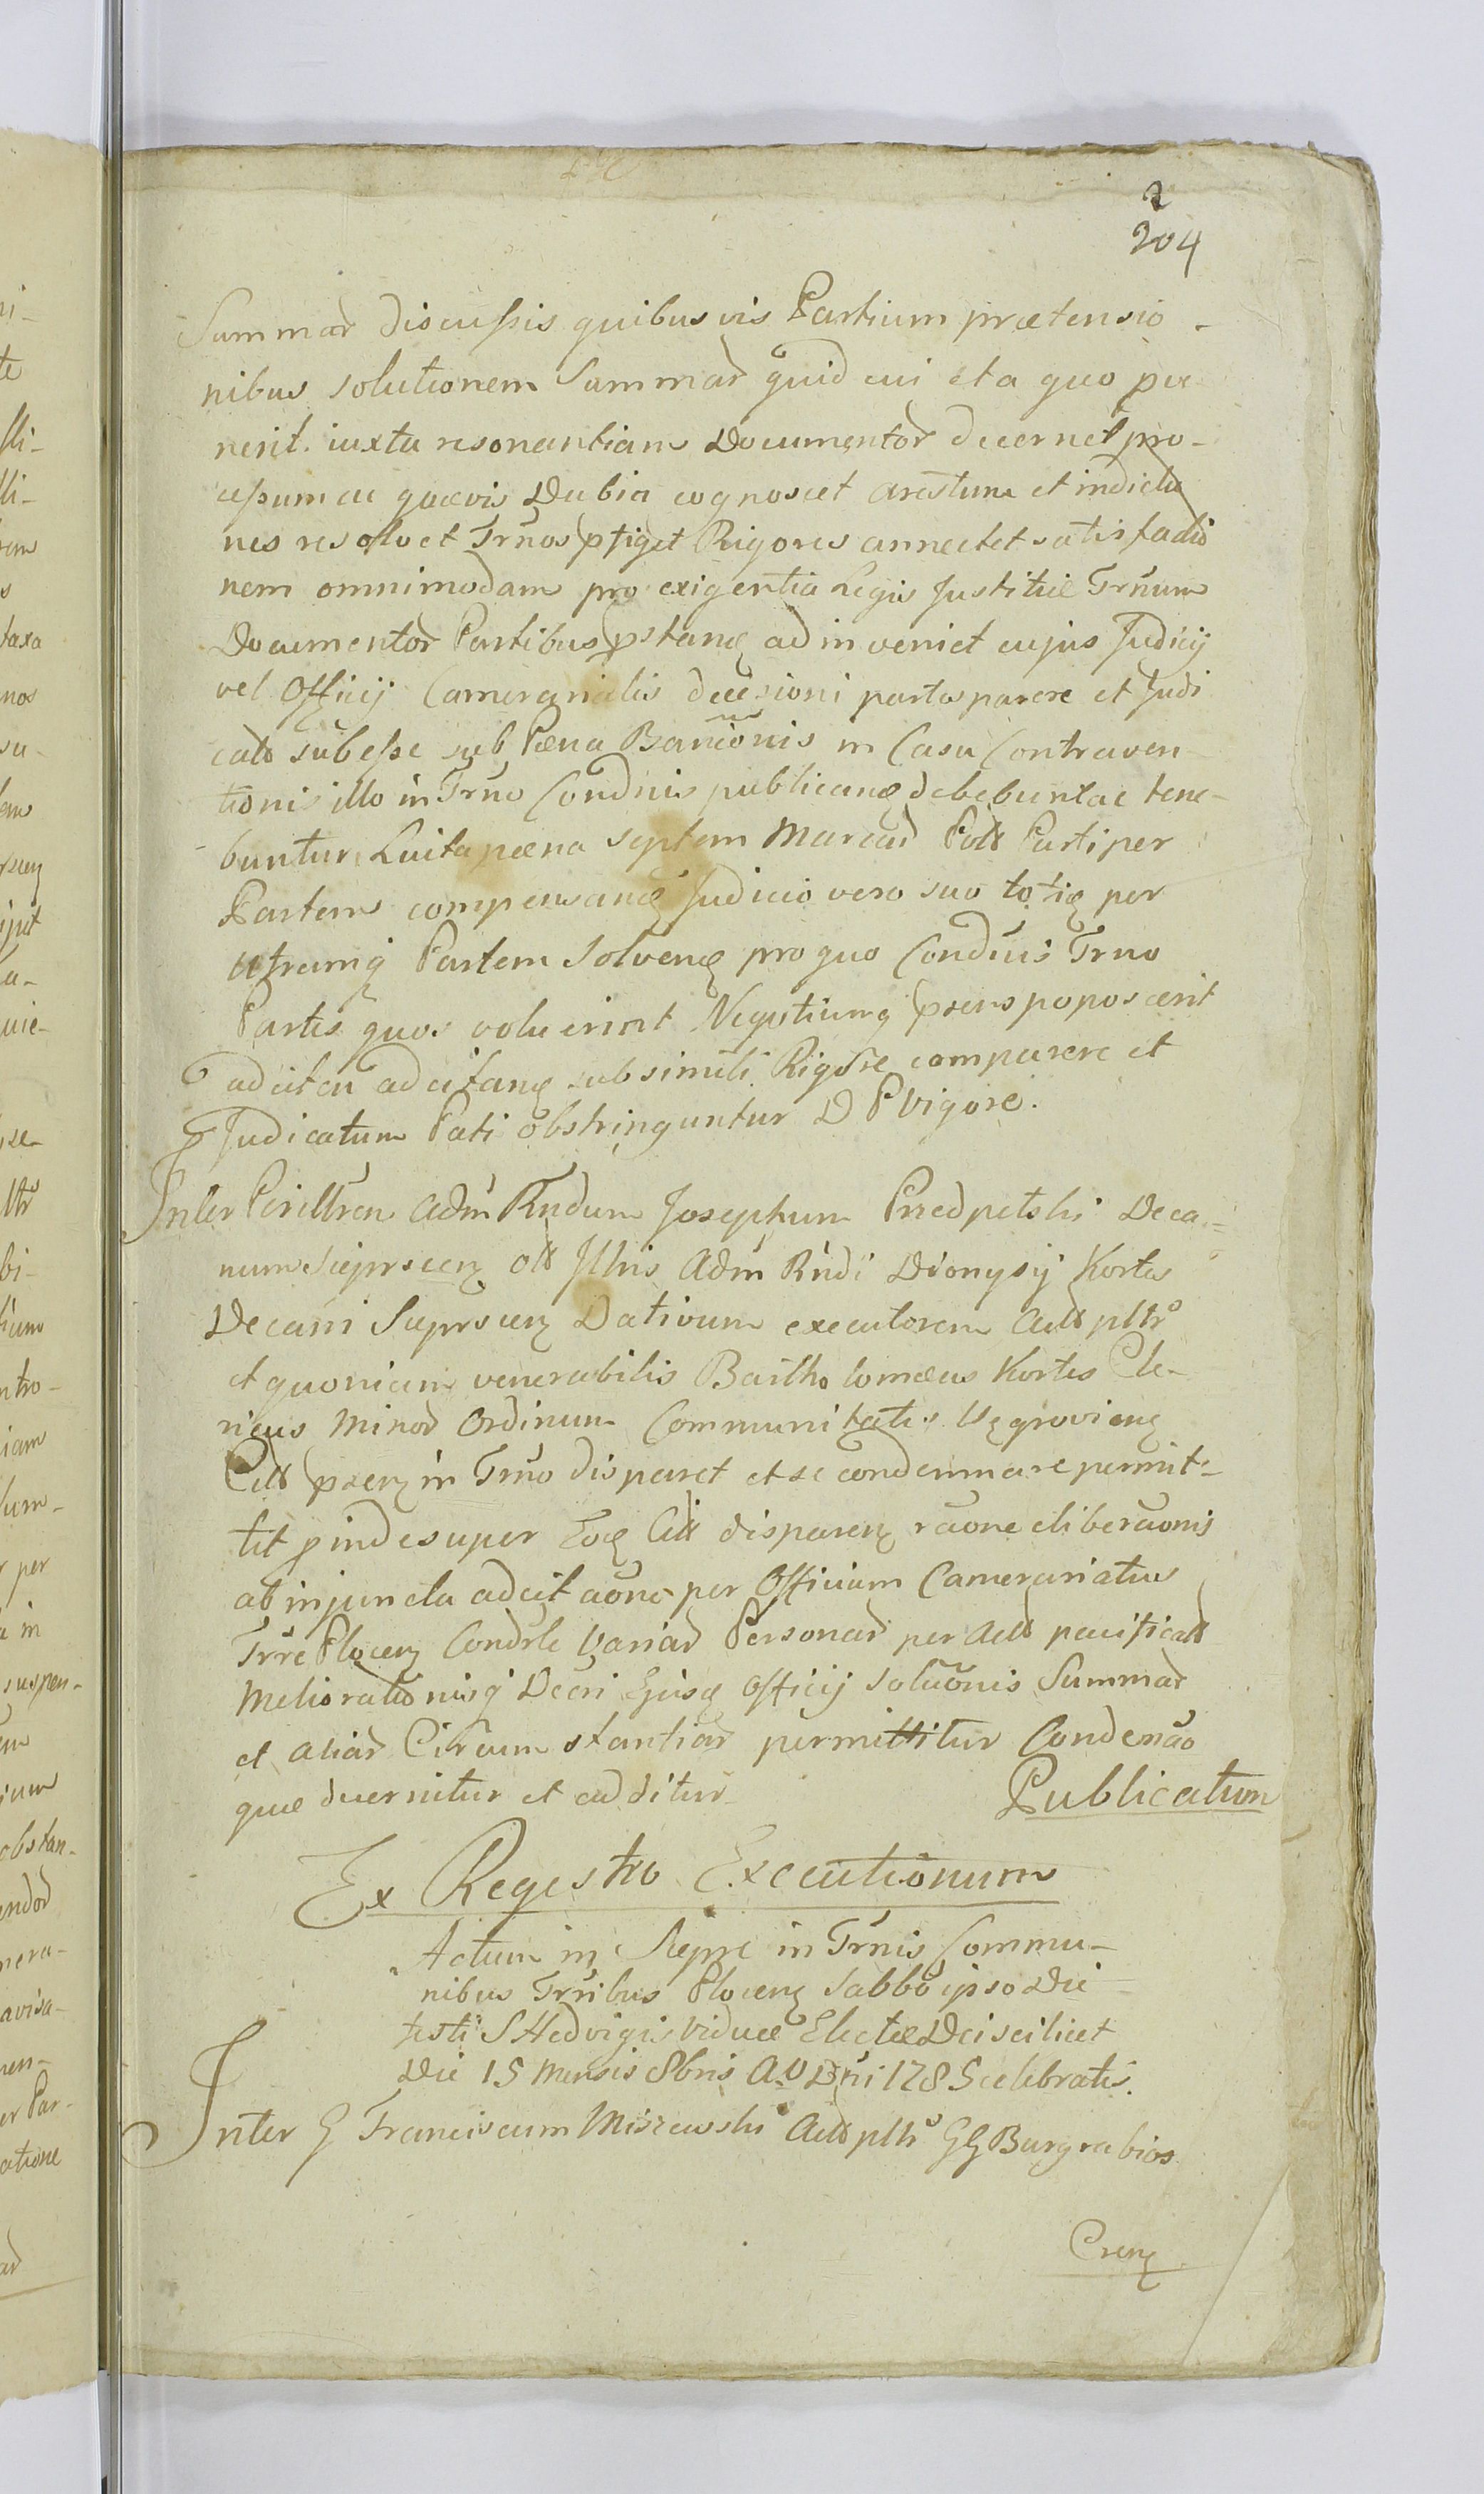 2
204
Summar discussis quibusvis Partium prætensio-
nibus solutionem Summar quid cui et a quo pve
nerit. iuxta resonantiam Documentor decernet pro-
cessum ac quævis Dubia cognoscet arestum et indictio
nes resolvet Trnos pfiget Rigores annectet satisfactio
nem omnimodam pro exigentia Legis Justitiæ Trnum
Documentor Partibus pstan adinveniet cujus Judicij
vel Officij Camerarialis decisioni partes parere et Judi
cato subesse sub Pæna Bannionis in Casu Contraven
tionis illo in Trno Condnis publican debebunt ac tene-
buntur Luita pæna septem Marcar Pol Parti per
Partem compensan Judicio vero suo toti per
utramq Partem solven pro quo Condnis Trno
Partes quos voluerint Negotiumq psens poposcerit
adcitcu adcitan sub simili Rigore comparere et
Judicatum Pati obstringuntur D P vigore.
Inter Perilltren Adm Rndum Josephum Przedpelski Deca-
num Sieprscen ol Illris Adm Rndi Dionysij Kortes
Decani Sieprscen Dativum executorem Act pltr
et quoniam venerabilis Bartholomæus Kortes Cle-
ricus Minor Ordinum Communitatis Węgrovien
Cit psen in Trno disparet et se condemnare permit-
tit pinde super Eo Cit disparen raone eliberaonis
ab injuncta adcitaone per Officium Camerariatus
Trre Plocen Condrle Variar Personar per Act pacificat
Meliorationisq Decri Ejusd Officij Soluonis Summar
et aliar Circumstantiar permittitur Condemnao
quæ decernitur et additur
Publicatum
Ex Regestro Executionum
Actum in Siepre in Trnis Commu-
nibus Trribus Plocen Sabbo ipso Die
festi S Hedvigis Viduæ Electæ Dei scilicet
Die 15 Mensis 8bris A.D Dni 1785 celebratis.
Inter G Franciscum Miszewski Act pltr GG Burgrabios
Cren